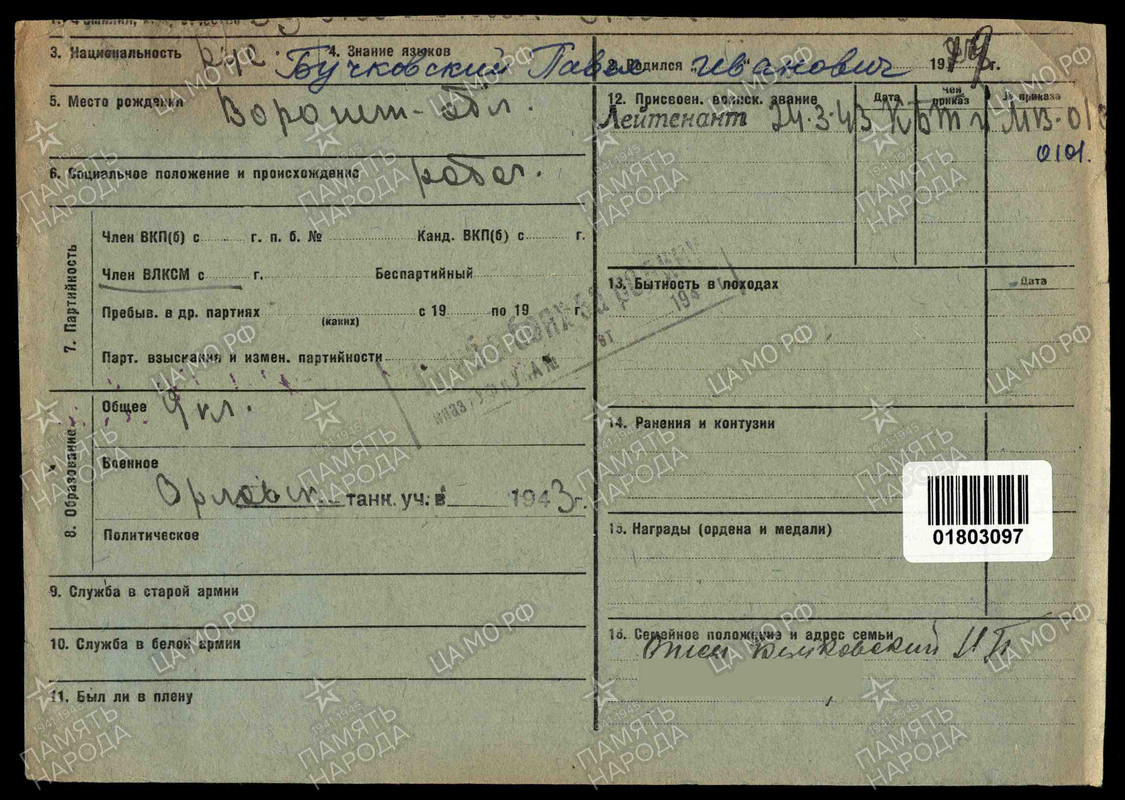 3. Национальность рус.
4. Знание языков
Бучковский Павел Иванович
2. Родился " " 19 г.
5. Место рождения Ворошил-. обл.
6. Социальное положение и происхождение рабоч.
7. Партийность
Член ВКП(б) с г. п. б. № Канд. ВКП(б) с г.
Член ВЛКСМ с г. Беспартийный
Пребыв. в др. партиях (каких) с 19 по 19 г.
Парт. взыскания и измен. партийности
8. Образование
Общее 9 кл.
Военное
Орловск. танк. уч. в 1943 г.
Политическое
9. Служба в старой армии
10. Служба в белой армии
11. Был ли в плену
12. Присвоен. воинск. звание Дата Чей приказ № приказа
Лейтенант 24.3.43 КБТ и МВ-
0101.
13. Бытность в походах Дата
14. Ранения и контузии
01803097
15. Награды (ордена и медали)
16. Семейное положение и адрес семьи
194 г.
от
ЦА МО РФ
1941 1945
ПАМЯТЬ НАРОДА